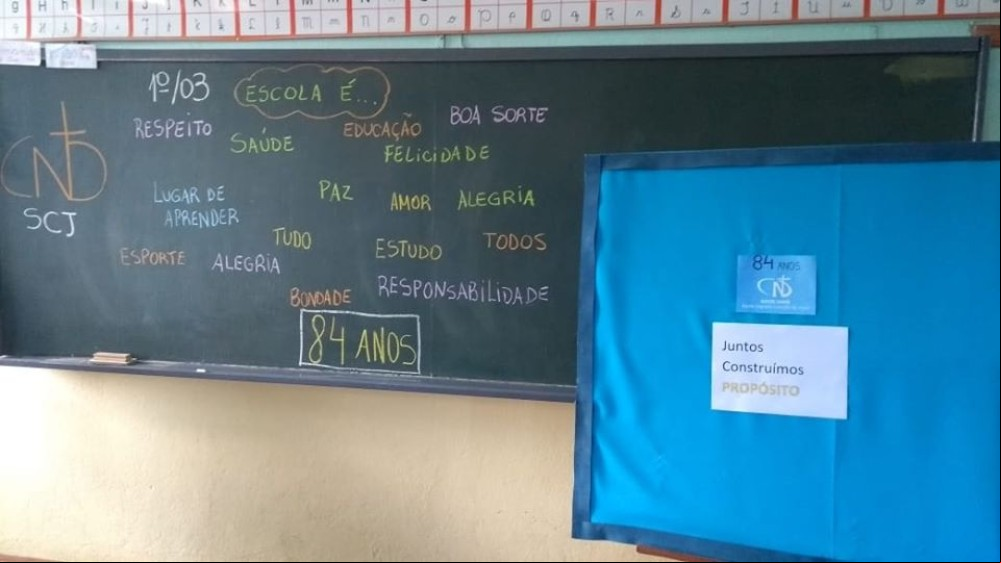 1º/03 ESCOLA É...
RESPEITO
SAÚDE
EDUCAÇÃO
BOA SORTE
FELICIDADE
LUGAR DE
APRENDER
PAZ
AMOR
ALEGRIA
TUDO
ESTUDO
TODOS
ESPORTE
ALEGRIA
BONDADE
RESPONSABILIDADE
84 ANOS
SCJ
84 ANOS
Juntos
Construímos
PROPÓSITO